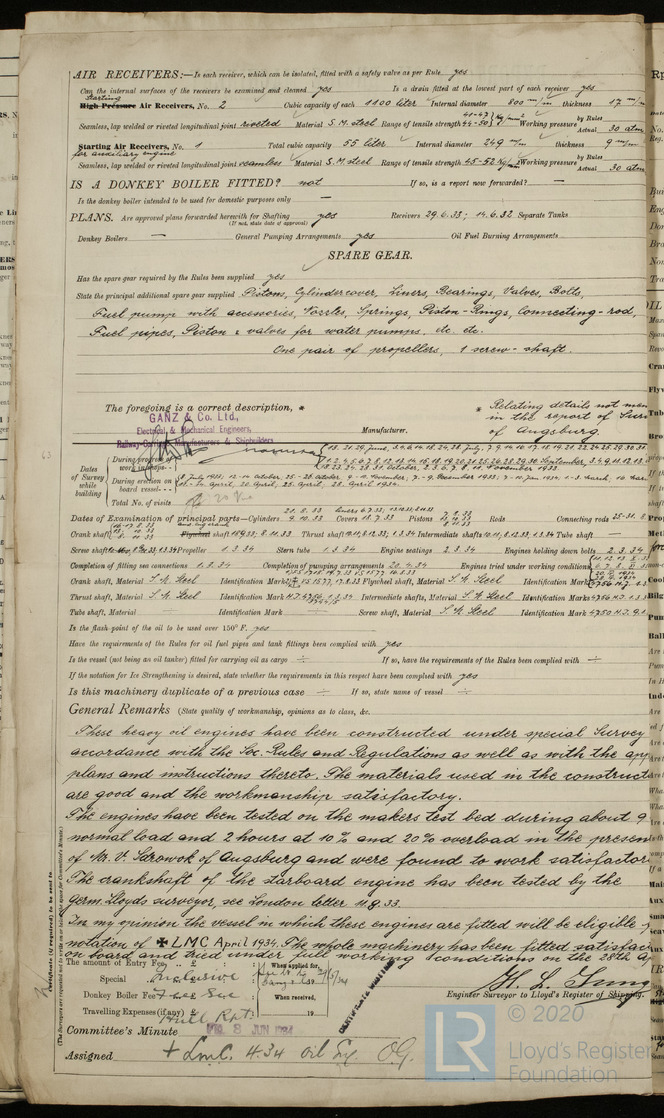 AIR RECEIVERS:—Is each receiver, which can be isolated, fitted with a safety valve as per Rule yes
Can the internal surfaces of the receivers be examined and cleaned yes Is a drain fitted at the lowest part of each receiver yes
Starting
High Pressure Air Receivers, No. 2 Cubic capacity of each 1100 liter Internal diameter 800 m/m thickness 17 m/m
Seamless, lap welded or riveted longitudinal joint riveted Material S.M. steel Range of tensile strength 41-47 44-50 Kg/mm² Working pressure by Rules Actual 30 atm
Starting Air Receivers, No. 1 Total cubic capacity 55 liter Internal diameter 249 m/m thickness 9 m/m
for auxiliary engine
Seamless, lap welded or riveted longitudinal joint seamless Material S.M. steel Range of tensile strength 45-52 Kg/mm² Working pressure by Rules Actual 30 atm
IS A DONKEY BOILER FITTED? not If so, is a report now forwarded? —
Is the donkey boiler intended to be used for domestic purposes only —
PLANS. Are approved plans forwarded herewith for Shafting yes Receivers 29.6.33; 14.6.32 Separate Tanks
(If not, state date of approval)
Donkey Boilers — General Pumping Arrangements yes Oil Fuel Burning Arrangements
SPARE GEAR.
Has the spare gear required by the Rules been supplied yes
State the principal additional spare gear supplied Pistons, Cylindercover, Liners, Bearings, Valves, Bolts,
Fuel pump with accessories, Nozzles, Springs, Piston-Rings, Connecting-rod,
Fuel pipes, Piston & valves for water pumps, etc. etc.
One pair of propellers, 1 screw-shaft.
The foregoing is a correct description, *
* Relating details not men
in the report of Sur
of Augsburg.
GANZ & Co. Ltd.,
Electrical & Mechanical Engineers,
Railway-Carriage Manufacturers & Shipbuilders
Manufacturer.
Dates of Survey while building
During progress of work in shops - -
During erection on board vessel - - -
Total No. of visits
Dates of Examination of principal parts—Cylinders 9.10.33 Covers 10.7.33 Pistons Rods Connecting rods 25-31.8
Crank shaft Flywheel shaft Thrust shaft 10.11, 8.12.33; 1.3.34 Intermediate shafts 10.11, 8.12.33, 1.3.34 Tube shaft —
Screw shaft Propeller 1.3.34 Stern tube 1.3.34 Engine seatings 2.3.34 Engines holding down bolts 2.3.34
Completion of fitting sea connections 1.3.34 Completion of pumping arrangements 20.4.34 Engines tried under working conditions
Crank shaft, Material S.M. Steel Identification Mark Flywheel shaft, Material S.M. Steel Identification Mark
Thrust shaft, Material S.M. Steel Identification Mark Intermediate shafts, Material S.M. Steel Identification Marks
Tube shaft, Material — Identification Mark — Screw shaft, Material S.M. Steel Identification Mark 4750 H.J. 9.1
Is the flash point of the oil to be used over 150° F. yes
Have the requirements of the Rules for oil fuel pipes and tank fittings been complied with yes
Is the vessel (not being an oil tanker) fitted for carrying oil as cargo ÷ If so, have the requirements of the Rules been complied with ÷
If the notation for Ice Strengthening is desired, state whether the requirements in this respect have been complied with yes
Is this machinery duplicate of a previous case ÷ If so, state name of vessel ÷
General Remarks (State quality of workmanship, opinions as to class, &c.
These heavy oil engines have been constructed under special Survey
accordance with the Soc. Rules and Regulations as well as with the app
plans and instructions thereto. The materials used in the construct
are good and the workmanship satisfactory.
The engines have been tested on the makers test bed during about 9
normal load and 2 hours at 10% and 20% overload in the presen
of Mr. V. Strowok of Augsburg and were found to work satisfactor
The crankshaft of the starboard engine has been tested by the
Germ. Lloyds surveyor, see London letter 11.8.33.
In my opinion the vessel in which these engines are fitted will be eligible f
notation of ✠ LMC April 1934. The whole machinery has been fitted satisfac
on board and tried under full working conditions on the 28th Ap
The amount of Entry Fee .. £ : : When applied for,
Special Inclusive
Donkey Boiler Fee See When received,
Travelling Expenses (if any) £ Hull Rpt. 19
Engineer Surveyor to Lloyd's Register of Shipping.
Committee's Minute FRI. 8 JUN 1934
Assigned + LMC. 4.34 oil Eng. O.G.
(The Surveyors are requested not to write on or below the space for Committee's Minute.)
Certificate (if required) to be sent to
LR
© 2020
Lloyd's Register
Foundation